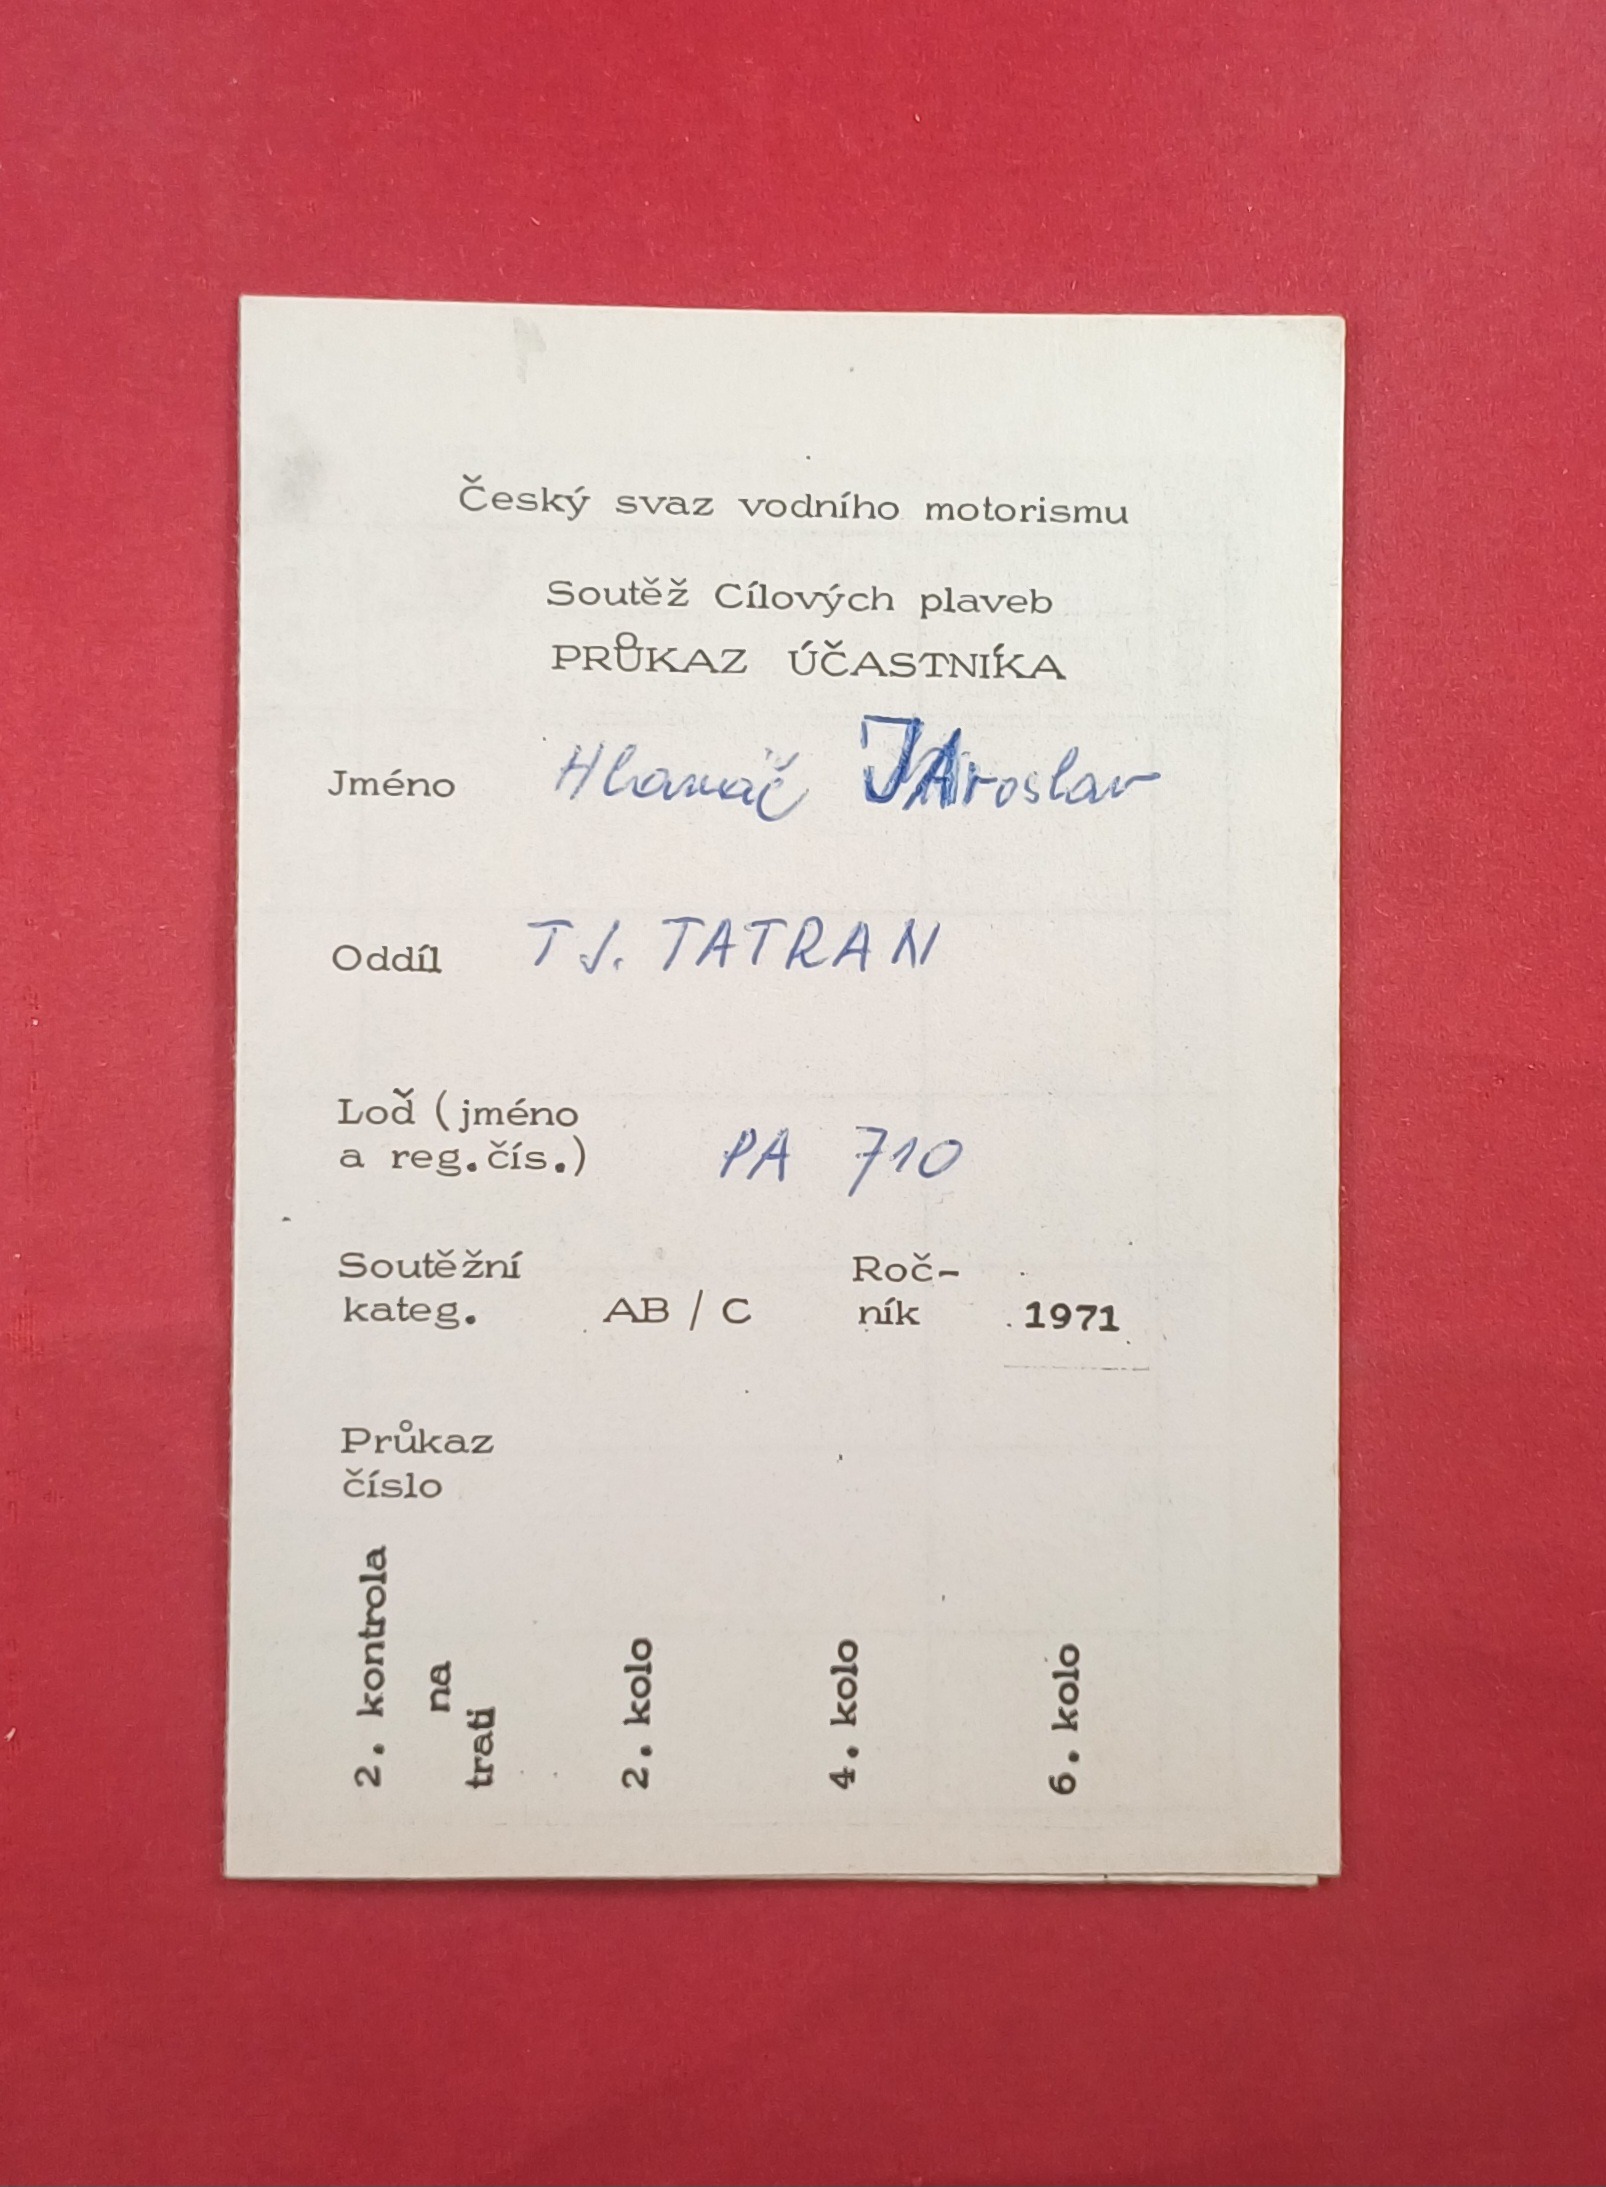 Český svaz vodního motorismu
Soutěž Cílových plaveb
PRŮKAZ ÚČASTNÍKA
Jméno Hlaváč JAroslav
Oddíl TJ. TATRAN
Loď (jméno
a reg.čís.) PA 710
Soutěžní Roč-
kateg. AB / C ník 1971
Průkaz
číslo
2. kontrola
na
trati
2. kolo
4. kolo
6. kolo